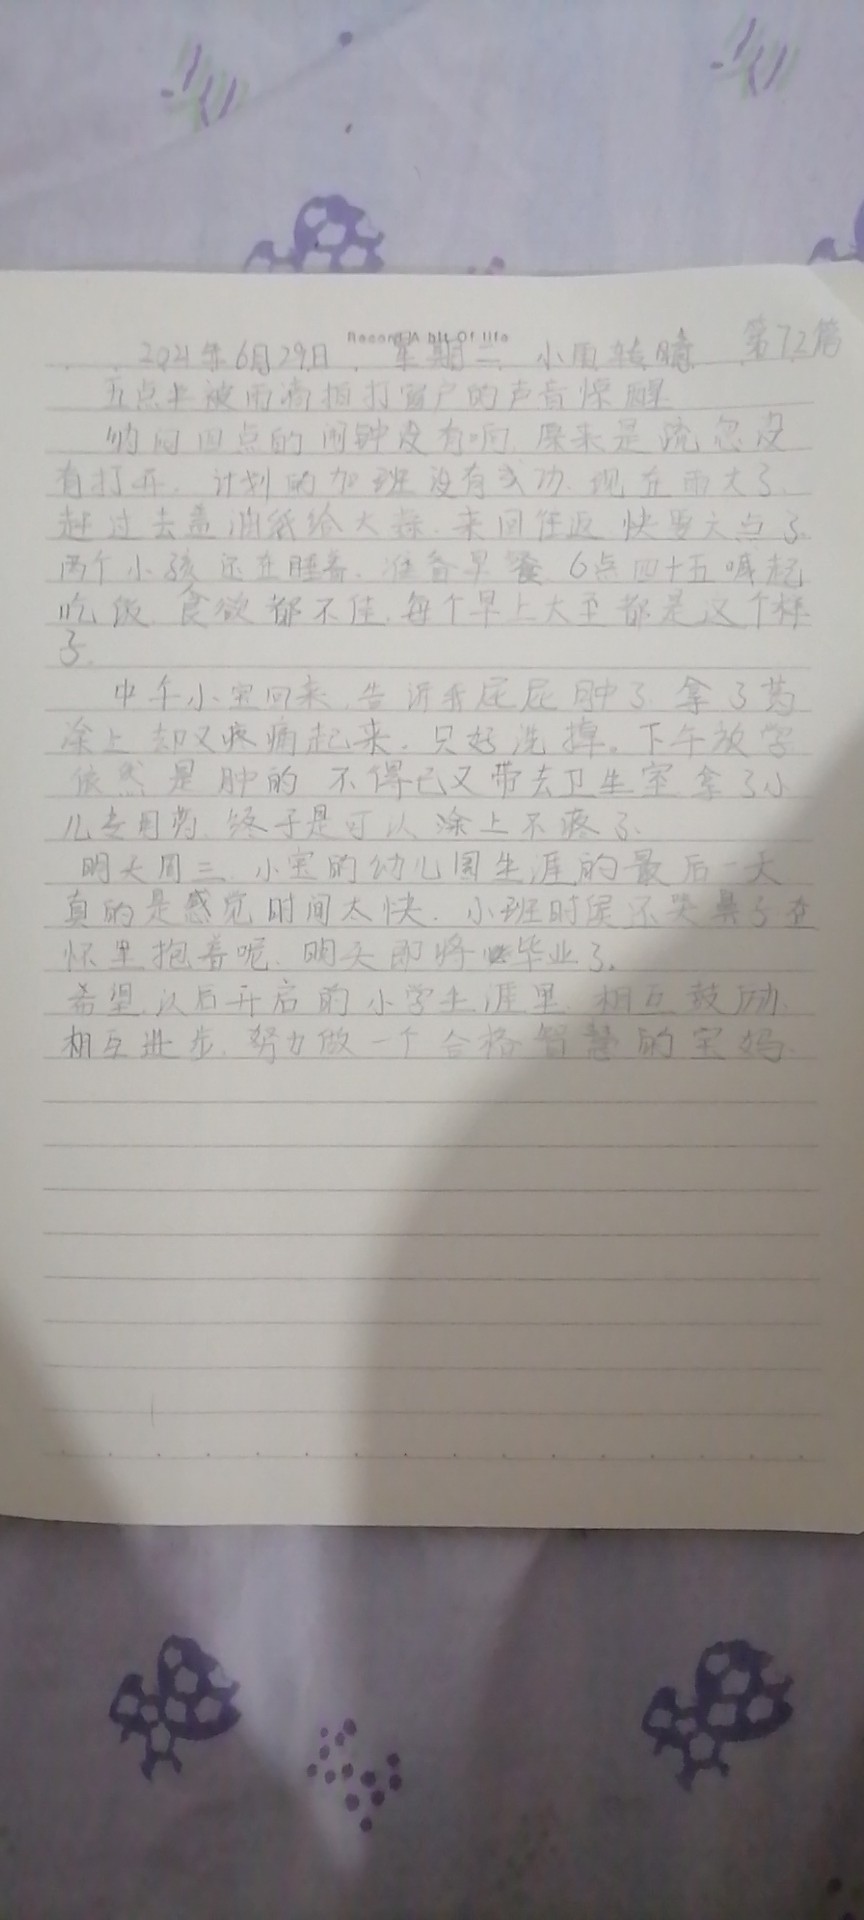 Record A bit Of life
第72篇
2021年6月29日 星期二 小雨转晴
五点半被雨滴拍打窗户的声音惊醒
纳闷四点的闹钟没有响,原来是疏忽没
有打开,计划的加班没有成功.现在雨大了,
赶过去盖油纸给大蒜.来回往返 快要六点了.
两个小孩还在睡着.准备早餐 6点四十五喊起
吃饭.食欲都不佳.每个早上大至都是这个样
子.
中午小宝回来,告诉我屁屁肿了.拿了药
涂上 却又疼痛起来.只好洗掉。下午放学
依然是肿的 不得已又带去卫生室拿了小
儿专用药.终于是可以涂上不疼了.
明天周三.小宝的幼儿园生涯的最后一天
真的是感觉时间太快.小班时侯还哭鼻子在
怀里抱着呢.明天即将毕业了.
希望以后开启的小学生涯里.相互鼓励.
相互进步.努力做一个合格智慧的宝妈.